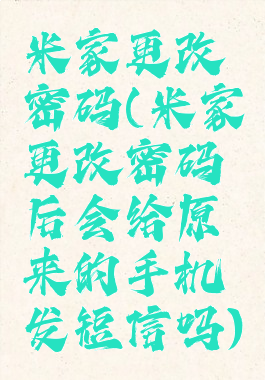 米家更改
密码(米家
更改密码
后会给原
来的手机
发短信吗)